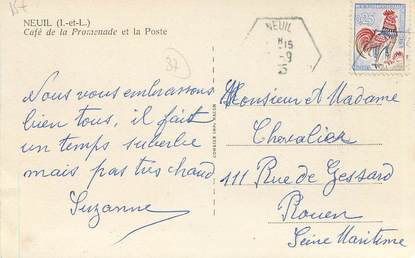 NEUIL (I.-et-L.)
Café de la Promenade et la Poste
32
NEUIL
0,25
Nous vous embrassons
bien tous, il fait
un temps superbe
mais pas très chaud
Suzanne
Monsieur et Madame
Chevalier
111 Rue de Gessard
Rouen
Seine Maritime